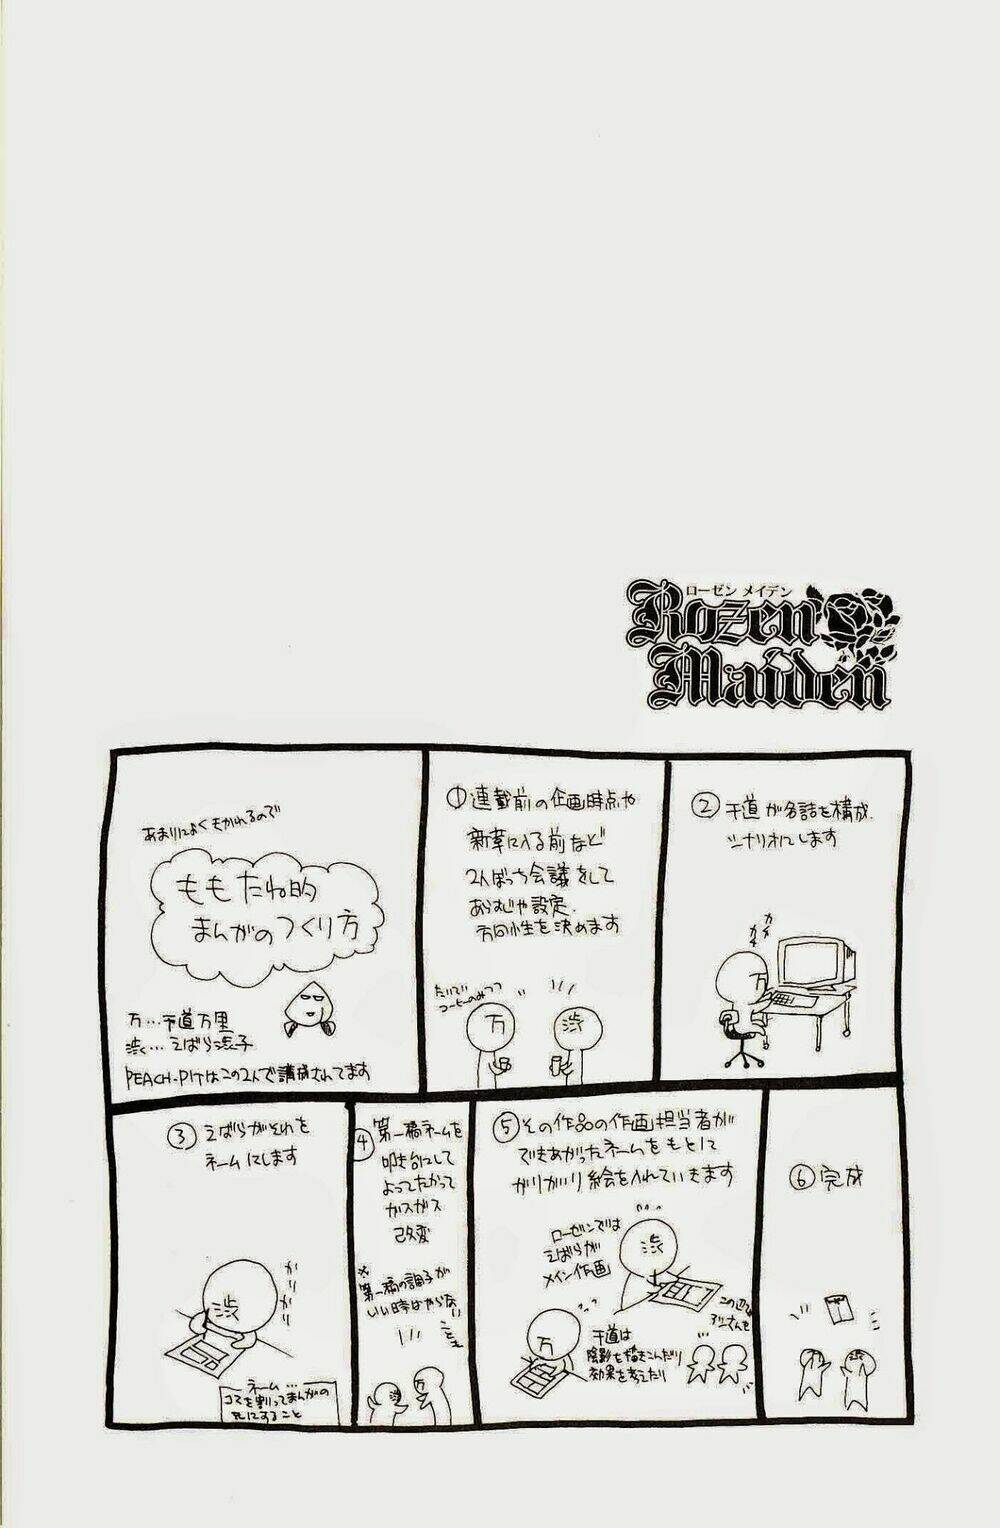 ローゼン メイデン
Rozen
Maiden
あまりによくきかれるので
ももたね的
まんがのつくり方
万…千道万里
渋…えばら渋子
PEACH-PITはこの2人で構成されてます
①連載前の企画時点や
新章に入る前など
2人ぼっち会議をして
あらすじや設定、
方向性を決めます
たいてい
コーヒーのみつつ
万
渋
②千道が各話を構成、
シナリオにします
カタ
カタ
万
③えばらがそれを
ネームにします
かりかり
渋
ネーム…
コマを割ってまんがの
元にすること
④第一稿ネームを
叩き台にして
よってたかって
ガスガス
改変
※
第一稿の調子が
いい時はやらない
渋
万
⑤その作品の作画担当者が
できあがったネームをもとに
がりがり絵を入れていきます
ローゼンでは
えばらが
メイン作画
渋
万
千道は
陰影を描きこんだり
効果を考えたり
この辺で
アシさんを
⑥完成